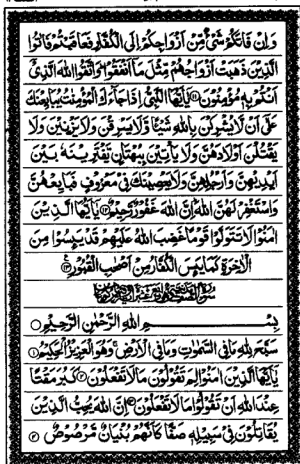 وَاِنْ فَاتَكُمْ شَیْءٌ مِّنْ اَزْوَاجِكُمْ اِلَى الْكُفَّارِ فَعَاقَبْتُمْ فَاٰتُوا
الَّذِیْنَ ذَهَبَتْ اَزْوَاجُهُمْ مِّثْلَ مَاۤ اَنْفَقُوْا وَاتَّقُوا اللّٰهَ الَّذِیْۤ
اَنْتُمْ بِهٖ مُؤْمِنُوْنَ ۝۱۱ یٰۤاَیُّهَا النَّبِیُّ اِذَا جَآءَكَ الْمُؤْمِنٰتُ یُبَایِعْنَكَ
عَلٰۤى اَنْ لَّا یُشْرِكْنَ بِاللّٰهِ شَیْـًٔا وَّلَا یَسْرِقْنَ وَلَا یَزْنِیْنَ وَلَا
یَقْتُلْنَ اَوْلَادَهُنَّ وَلَا یَاْتِیْنَ بِبُهْتَانٍ یَّفْتَرِیْنَهٗ بَیْنَ
اَیْدِیْهِنَّ وَاَرْجُلِهِنَّ وَلَا یَعْصِیْنَكَ فِیْ مَعْرُوْفٍ فَبَایِعْهُنَّ
وَاسْتَغْفِرْ لَهُنَّ اللّٰهَ اِنَّ اللّٰهَ غَفُوْرٌ رَّحِیْمٌ ۝۱۲ یٰۤاَیُّهَا الَّذِیْنَ
اٰمَنُوْا لَا تَتَوَلَّوْا قَوْمًا غَضِبَ اللّٰهُ عَلَیْهِمْ قَدْ یَىِٕسُوْا مِنَ
الْاٰخِرَةِ كَمَا یَىِٕسَ الْكُفَّارُ مِنْ اَصْحٰبِ الْقُبُوْرِ ۝۱۳
بِسْمِ اللّٰهِ الرَّحْمٰنِ الرَّحِیْمِ ۝
سَبَّحَ لِلّٰهِ مَا فِی السَّمٰوٰتِ وَمَا فِی الْاَرْضِ وَهُوَ الْعَزِیْزُ الْحَكِیْمُ ۝۱
یٰۤاَیُّهَا الَّذِیْنَ اٰمَنُوْا لِمَ تَقُوْلُوْنَ مَا لَا تَفْعَلُوْنَ ۝۲ كَبُرَ مَقْتًا
عِنْدَ اللّٰهِ اَنْ تَقُوْلُوْا مَا لَا تَفْعَلُوْنَ ۝۳ اِنَّ اللّٰهَ یُحِبُّ الَّذِیْنَ
یُقَاتِلُوْنَ فِیْ سَبِیْلِهٖ صَفًّا كَاَنَّهُمْ بُنْیَانٌ مَّرْصُوْصٌ ۝۴